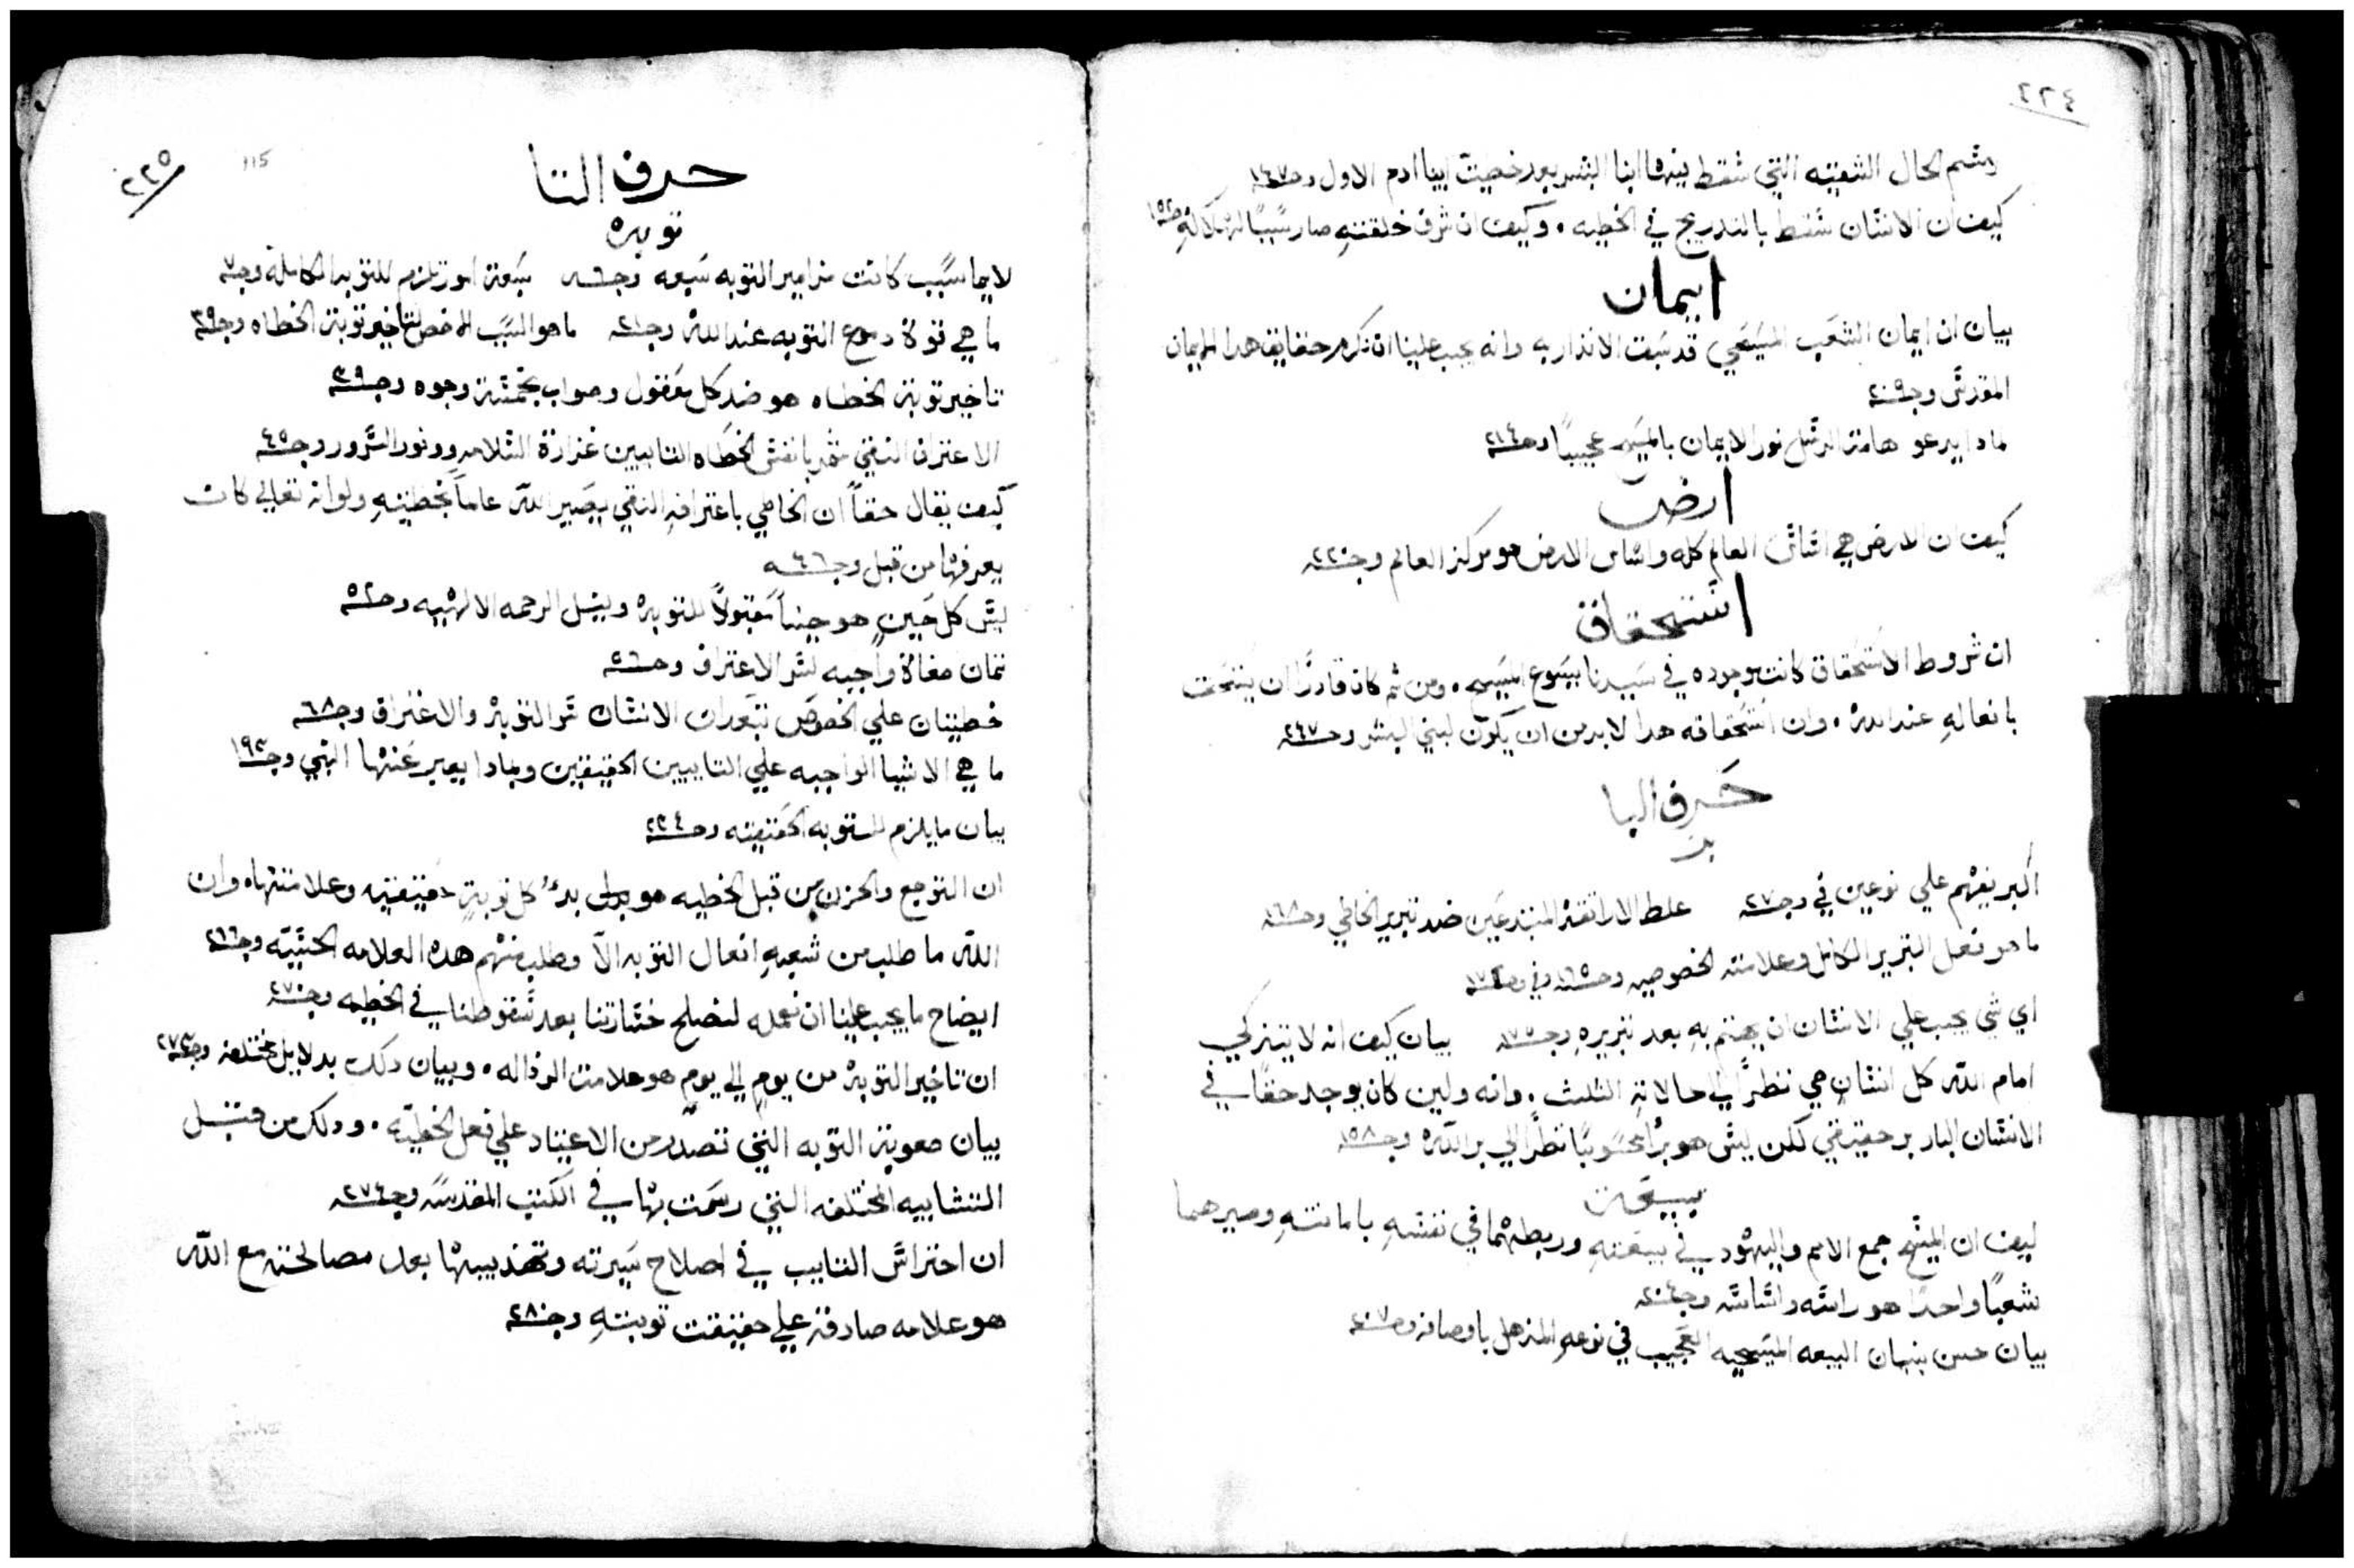 ٢٢٤
رسم الحال الشقيه التي سقط فيها ابنا البشر بعد خطيت ابينا ادم الاول وجـ١٤٧ـه
كيف ان الانسان سقط بالتدريج في الخطيه. وكيف ان شرف خلقته صار سببًا لهلاكه ١٥٢
ايمان
بيان ان ايمان الشعب المسيحي قد سبقت الانذار به وانه يجب علينا ان نكرم حقايق هدا الايمان
المقدس وجـ٢٠٩ـه
لمادا يدعو هامت الرسل نور الايمان بالمسيح عجيبًا وجـ٢١٤ـه
ارض
كيف ان الارض هي اساس العالم كله واساس الارض هو مركز العالم وجـ٢٢٠ـه
استحقاق
ان شروط الاستحقاق كانت موجوده في سيدنا يسوع المسيح. ومن ثم كان قادرًا ان يستحق
بافعاله عند الله. وان استحقاقه هدا لا بد من ان يكون لبني البشر وجـ٢٦٧ـه
حرف البا
بر
البر يفهم علي نوعين في وجـ٢٧ـه غلط الاراتقه المبتدعين ضد تبرير الخاطي وجـ١٦٨ـه
ما هو فعل التبرير الكامل وعلامته الخصوصيه وجـ١٦٥ـه وفي
اي شي يجب علي الانسان ان يهتم به بعد تبريره وجـ١٧٥ـه بيان كيف انه لا يتزكي
امام الله كل انسان حي نظرًا الي حالاته الثلث. وانه ولين كان يوجد حقًا في
الانسان البار بر حقيقي لكن ليس هو برًا محسوبًا نظرًا الي بر الله وجـ١٥٨ـه
بيعة
كيف ان المسيح جمع الامم واليهود في بيعته وربطهما في نفسه بامانته وصيرهما
شعبًا واحدًا هو راسه واساسه وجـ٢٠٤ـه
بيان حسن بنيان البيعه المسيحيه العجيب في نوعه المذهل باوصافه وجـ٢٠٧ـه
٢٢٥
115
حرف التا
توبه
لايما سبب كانت مزامير التوبه سبعه وجـ٦ـه سبعة امور تلزم للتوبه الكامله وجـ٧ـه
ما هي قوة دموع التوبه عند الله وجـ٢١ـه ما هو السبب الاخص لتاخير توبة الخطاه وجـ٣٩ـه
تاخير توبة الخطاه هو ضد كل معقول وصواب بخمسة وجوه وجـ٣٩ـه
الاعتراف النقي تثمر بانفس الخطاه التايبين غزارة السلامه ووفور السرور وجـ٤٥ـه
كيف يقال حقاً ان الخاطي باعترافه النقي يصير الله عالماً بخطيته ولو انه تعالي كان
يعرفها من قبل وجـ٤٦ـه
ليس كل حين هو حيناً مقبولاً للتوبه وبنيل الرحمه الالهيه وجـ٥٢ـه
ثمان صفاة واجبه لسر الاعتراف وجـ٥٦ـه
خطيتان علي الخصوص تبعدان الانسان عن التوبه والاعتراف وجـ٦٨ـه
ما هي الاشيا الواجبه علي التايبين الحقيقيين وبمادا يعبر عنها النبي وجـ١٩٣
بيان ما يلزم للتوبه الحقيقيه وجـ٢٣٤ـه
ان التوجع والحزن من قبل الخطيه هو بدء كل توبةٍ حقيقيه وعلامتها. وان
الله ما طلب من شعبه افعال التوبه الا وطلب منهم هده العلامه الحسيه وجـ٢٦٦
ايضاح ما يجب علينا ان نعمله لنصلح خسارتنا بعد سقوطنا في الخطيه وجـ٢٧٠ـه
ان تاخير التوبه من يومٍ الي يومٍ هو علامت الرذاله. وبيان دلك بدلايل مختلفه وجـ٢٧٣ـه
بيان صعوبة التوبه التي تصدر من الاعتياد علي فعل الخطيه. ودلك من قبل
التشابيه المختلفه التي رسمت بها في الكتب المقدسه وجـ٢٧٤ـه
ان احتراس التايب في اصلاح سيرته وتهذيبها بعد مصالحته مع الله
هو علامه صادقه علي حقيقت توبته وجـ٢٨٠ـه